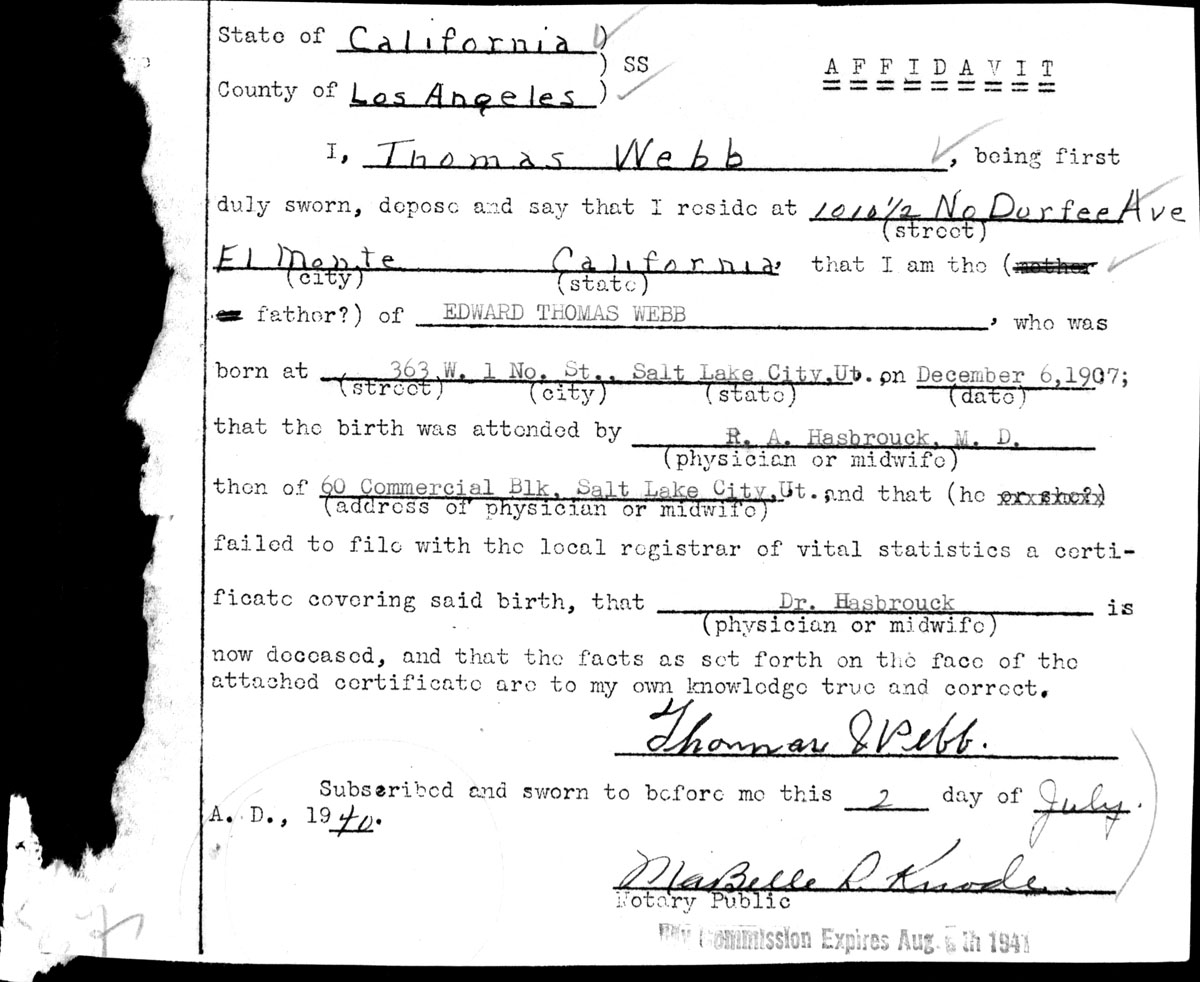 State of California )
) SS
A F F I D A V I T
County of Los Angeles )
I, Thomas Webb , being first
duly sworn, depose and say that I reside at 1010 1/2 No Durfee Ave
(street)
El Monte California, that I am the (mother
(city) (state)
or father?) of EDWARD THOMAS WEBB , who was
born at 363 W. 1 No. St., Salt Lake City, Ut. on December 6, 1907;
(street) (city) (state) (date)
that the birth was attended by R. A. Hasbrouck, M. D.
(physician or midwife)
then of 60 Commercial Blk, Salt Lake City, Ut., and that (he or she?)
(address of physician or midwife)
failed to file with the local registrar of vital statistics a certi-
ficate covering said birth, that Dr. Hasbrouck is
(physician or midwife)
now deceased, and that the facts as set forth on the face of the
attached certificate are to my own knowledge true and correct.
Thomas Webb.
Subscribed and sworn to before me this 2 day of July.
A. D., 1940.
MaBelle R. Knode
Notary Public
My Commission Expires Aug. th 1941